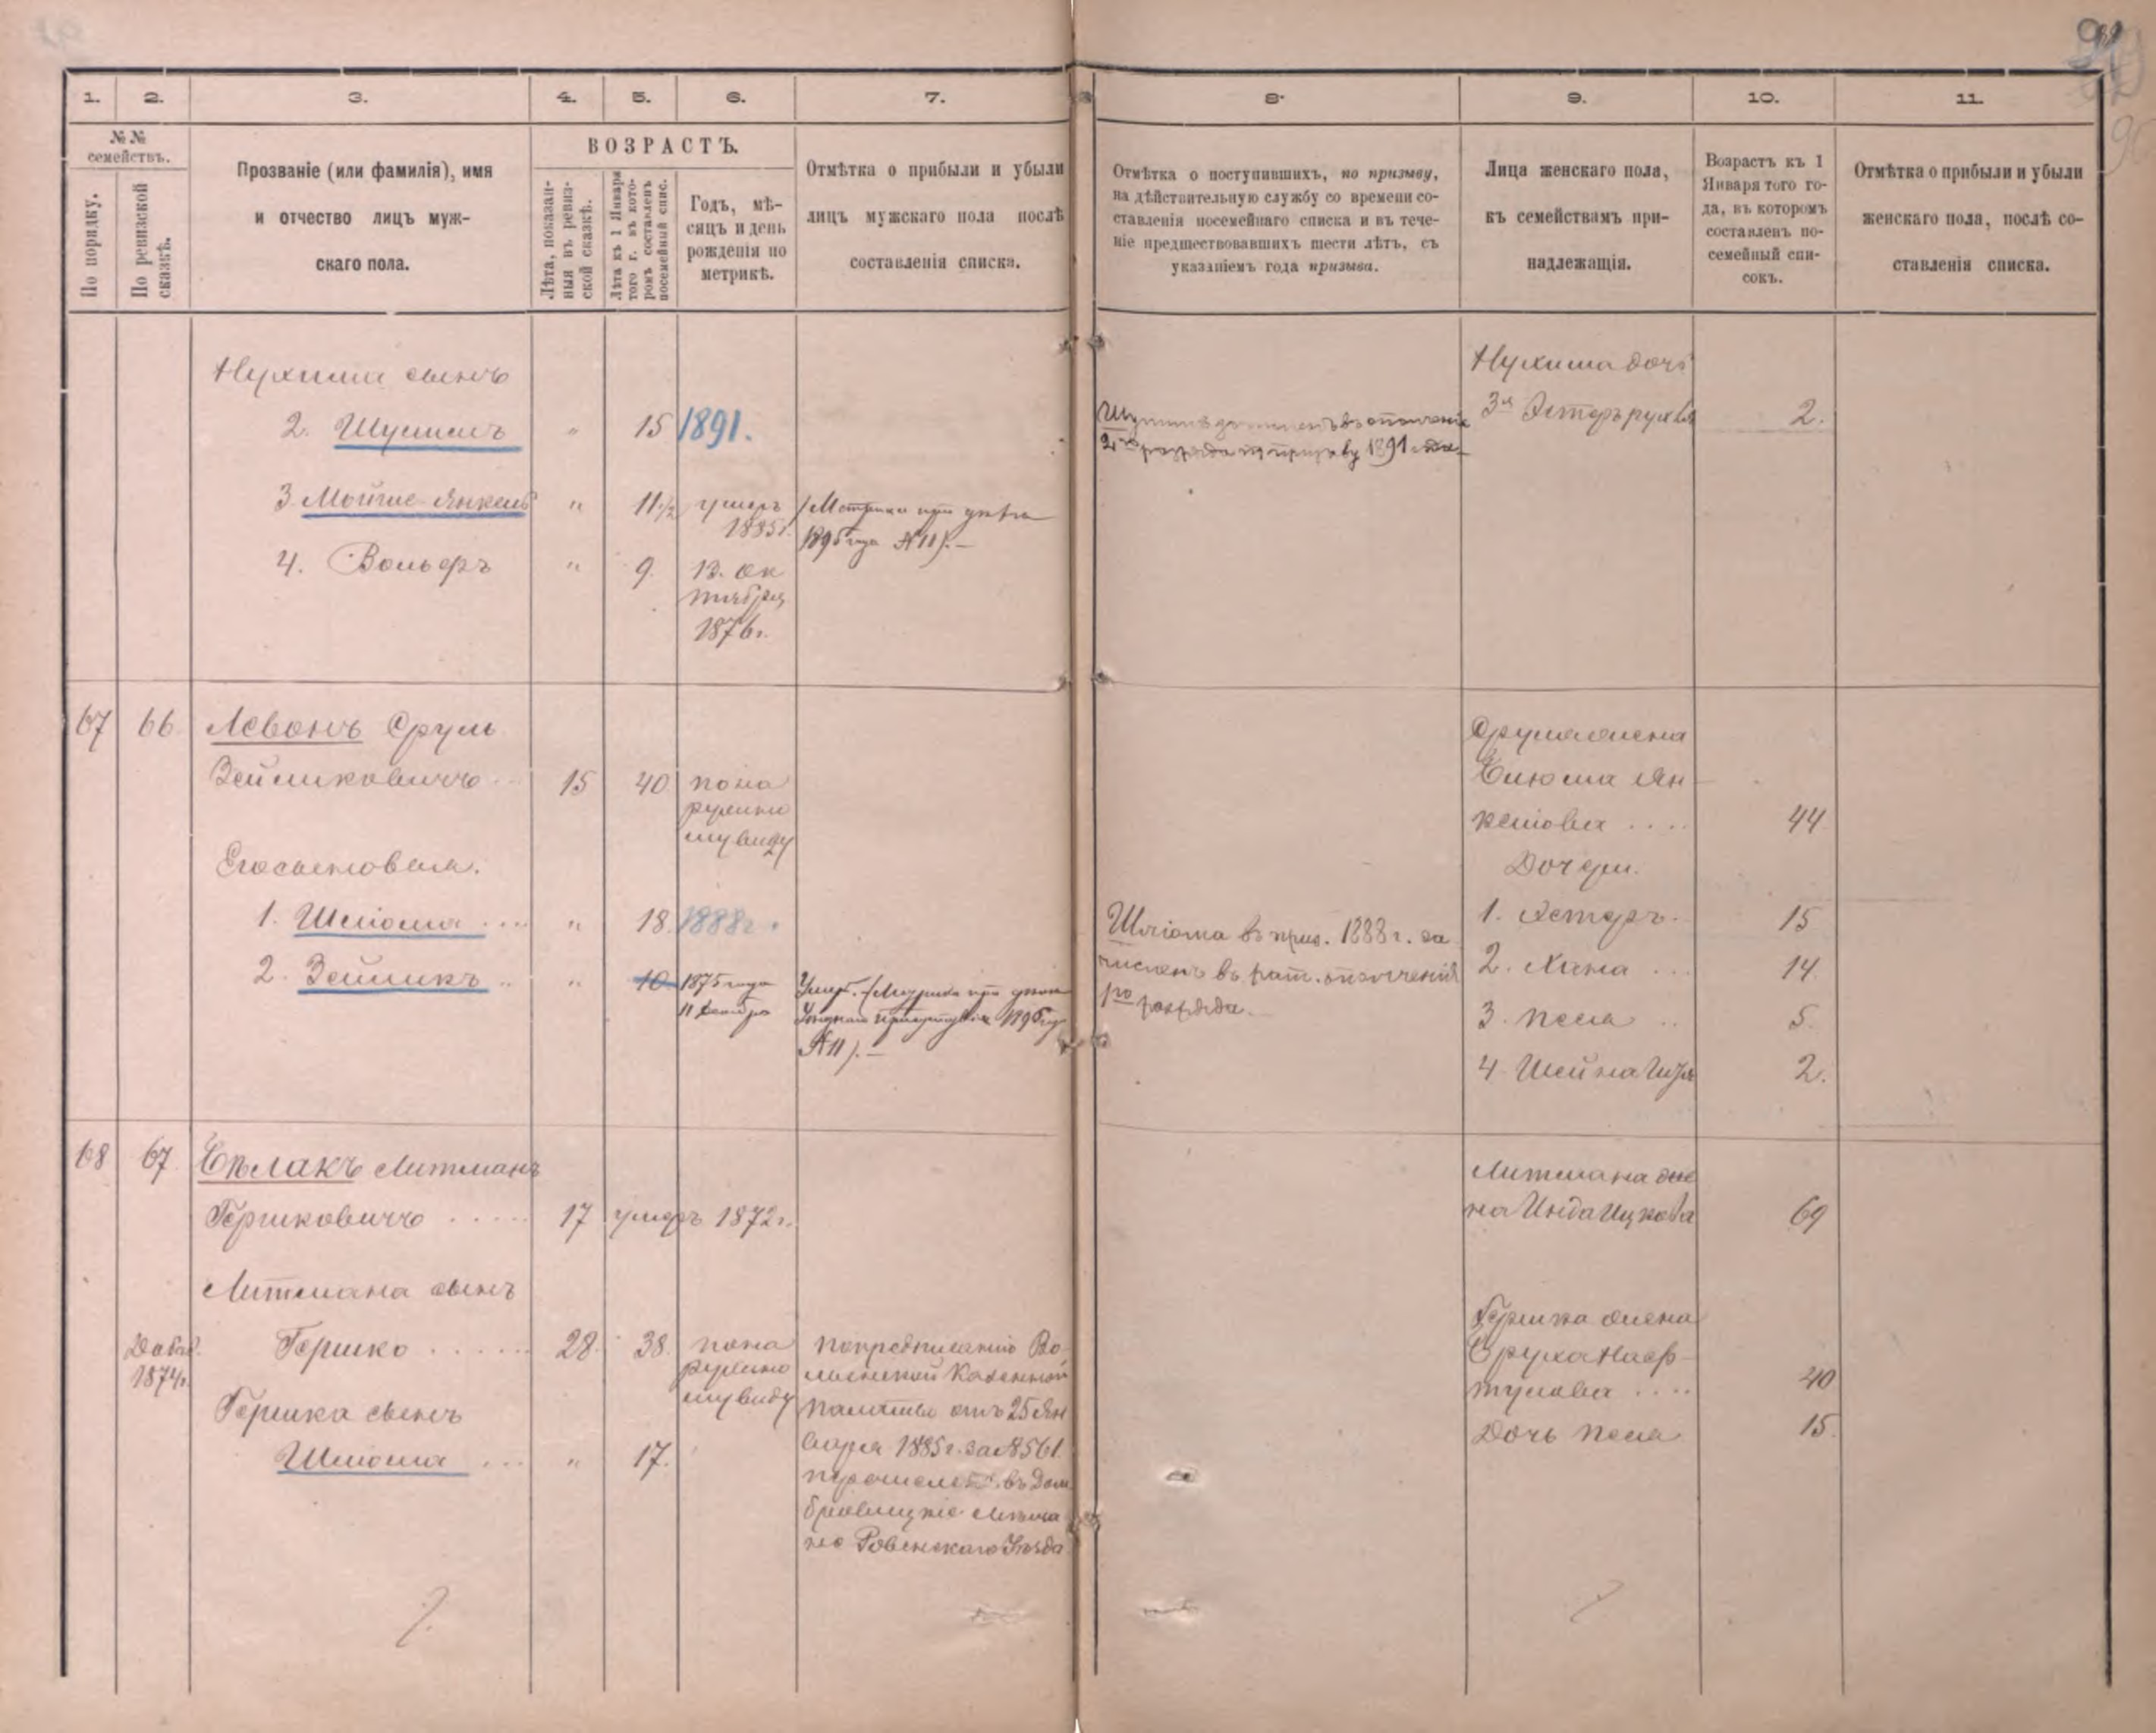 1. 2. 3. 4. 5. 6. 7. 8. 9. 10. 11.
№ № семействъ.
По порядку.
По ревизской сказкѣ.
Прозваніе (или фамилія), имя
и отчество лицъ муж-
скаго пола.
ВОЗРАСТЪ.
Лѣта, показан-
ныя въ ревиз-
ской сказкѣ.
Лѣта къ 1 Января
того г. въ кото-
ромъ составленъ
посемейный спис.
Годъ, мѣ-
сяцъ и день
рожденія по
метрикѣ.
Отмѣтка о прибыли и убыли
лицъ мужскаго пола послѣ
составленія списка.
Отмѣтка о поступившихъ, по призыву,
на дѣйствительную службу со времени со-
ставленія посемейнаго списка и въ тече-
ніе предшествовавшихъ шести лѣтъ, съ
указаніемъ года призыва.
Лица женскаго пола,
къ семействамъ при-
надлежащія.
Возрастъ къ 1
Января того го-
да, въ которомъ
составленъ по-
семейный спи-
сокъ.
Отмѣтка о прибыли и убыли
женскаго пола, послѣ со-
ставленія списка.
Нухима сынъ
2. Шулимъ " 15 1891.
2го разряда призыву 1891 года
Нухима дочь
3я Эстеръ рухля 2.
3. Мойше Янкель " 11 1/2 умеръ
1885г.
(Метрика при дѣлѣ
1895 года № 11).—
4. Вольфъ " 9. 13. ок
тября
1876г.
67 66 Левонъ Сруль
Зейликовичъ 15 40 пона
ружно
му виду
Сруля жена
Блюма Ян
келіова 44
Его сыновья.
1. Шліома " 18. 1888г.
Шліома въ приз. 1888 г. за
численъ въ рат. ополченія
1го разряда.
2. Зейликъ " 10. 1875 года
11
Умеръ. (Метрика при дѣлѣ
1895 г.
№ 11).—
Дочери.
1. Эстеръ. 15
2. Хана 14.
3. Песя 5.
4. Шейна 2.
68 67 Бѣлакъ Литманъ
Гершковичъ 17 умеръ 1872г.
Литмана же
на Инда Ицкова 69
Литмана сынъ
Добав.
1874г.
Гершко 28. 38. пона
ружно
му виду
По предписанію Во-
лынской Казенной
Палаты отъ 25 Ян
варя 1885 г. за № 561.
перечисленъ въ Дом
бровицкіе мѣща
не Ровенскаго Уѣзда
Гершка сынъ
Шліома " 17.
Гершка жена
Бруха Наф-
тулова 40
Дочь Песя 15.